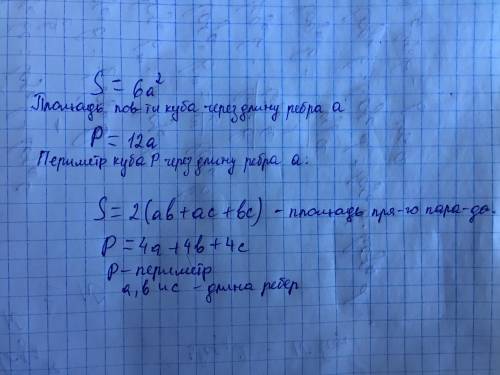 S = 6a²
Площадь пов-ти куба через длину ребра а
P = 12a
Периметр куба P через длину ребра а.
S = 2(ab + ac + bc) - площадь пря-го пара-да.
P = 4a + 4b + 4c
P - периметр
а, в и с - длина ребер